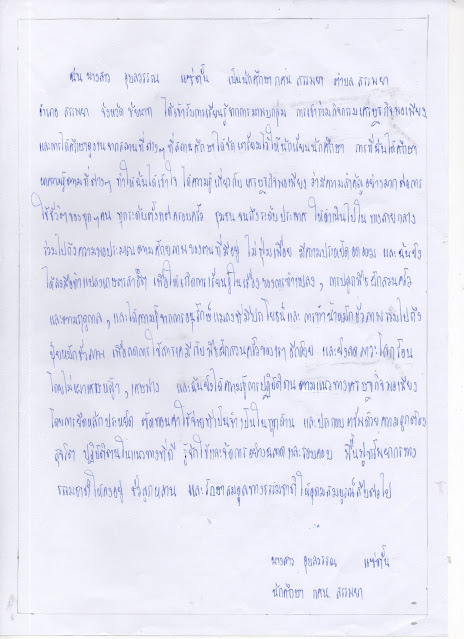 ฉัน นางสาว อุบลวรรณ แซ่ตั้น เป็นนักศึกษา กศน สรรพยา ตำบล สรรพยา
อำเภอ สรรพยา จังหวัด ชัยนาท ได้เข้ารับการเรียนรู้จากการมาพบกลุ่ม การเข้าร่วมกิจกรรมเศรษฐกิจพอเพียง
และการได้ศึกษาดูงานจากสถานที่ต่างๆ ที่สถานศึกษาได้จัดเตรียมไว้ให้นักเรียนนักศึกษา การที่ฉันได้ศึกษา
หาความรู้ตามที่ต่างๆ ทำให้ฉันได้เข้าใจ ได้ความรู้เกี่ยวกับ เศรษฐกิจพอเพียง ว่ามีความสำคัญอย่างมากต่อการ
ใช้ชีวิตของทุกๆคน ทุกระดับตั้งแต่ครอบครัว ชุมชน จนถึงระดับประเทศ ให้ดำเนินไปใน ทางสายกลาง
รวมไปถึงความพอประมาณตามศักยภาพของตนที่มีอยู่ ไม่ฟุ่มเฟือย มีความประหยัดอดออม และฉันยัง
ได้ลงมือทำแปลงเกษตรสาธิต เพื่อให้เกิดการเรียนรู้ในเรื่องของการทำแปลง, การปลูกพืชผักสวนครัว
และตามฤดูกาล, และได้ความรู้จากการอนุรักษ์แมลงที่มีประโยชน์และ การทำน้ำหมักชีวภาพรวมไปถึง
ปุ๋ยหมักชีวภาพ เพื่อลดการใช้สารเคมีกับพืชผักสวนครัวของเราอีกด้วย และยังลดภาวะโลกร้อน
โดยไม่เผาเศษหญ้า, เศษฟาง และฉันยังได้ความรู้การปฏิบัติตนตามแนวทางเศรษฐกิจพอเพียง
โดยการยึดหลักประหยัด ตัดทอนค่าใช้จ่ายที่ไม่จำเป็นในทุกด้าน และประกอบอาชีพด้วยความถูกต้อง
สุจริต ปฏิบัติตนในแนวทางที่ดี รู้จักใช้และจัดการอย่างฉลาดและรอบคอบ ฟื้นฟูทรัพยากรทาง
ธรรมชาติให้คงอยู่ ชั่วลูกหลาน และรักษาสมดุลทางธรรมชาติให้อุดมสมบูรณ์สืบต่อไป
นางสาว อุบลวรรณ แซ่ตั้น
นักศึกษา กศน สรรพยา